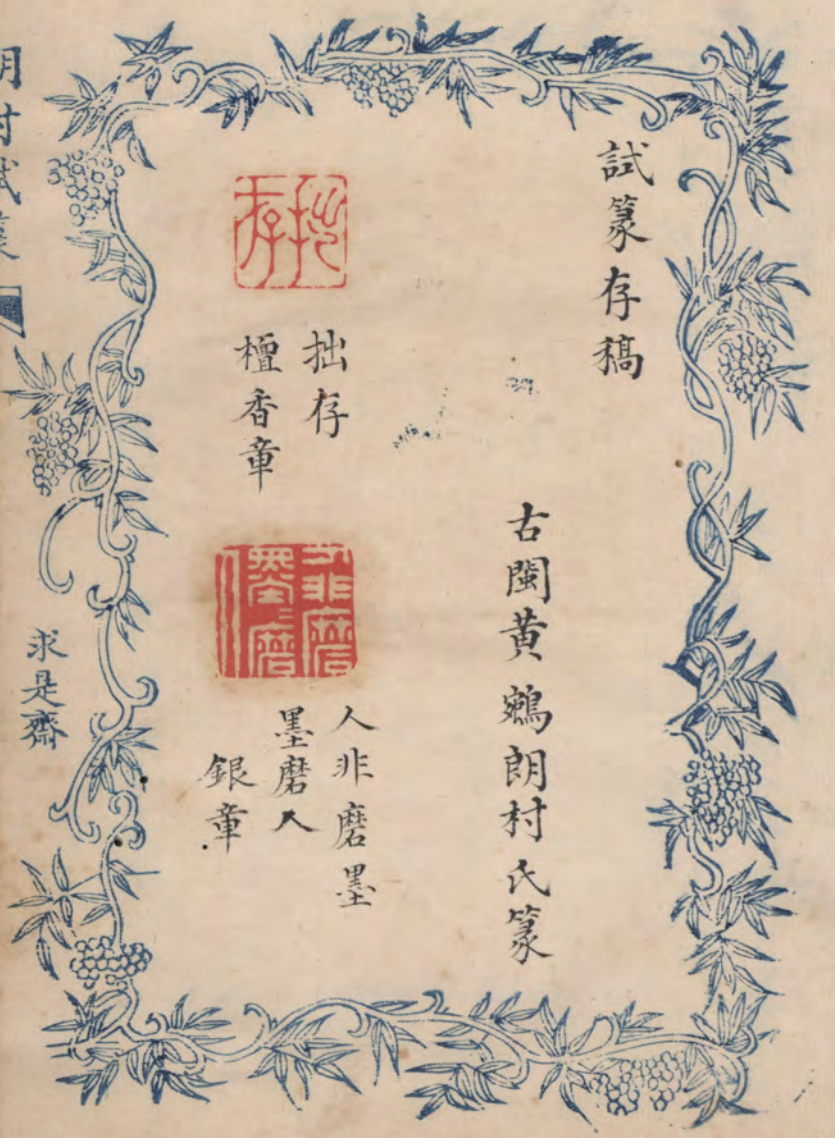 試篆存稿
古閩黃鵷朗村氏篆
拙存
拙存
檀香章
人非磨墨
墨磨人
人非磨墨墨磨人
銀章
朗村試篆
求是齋